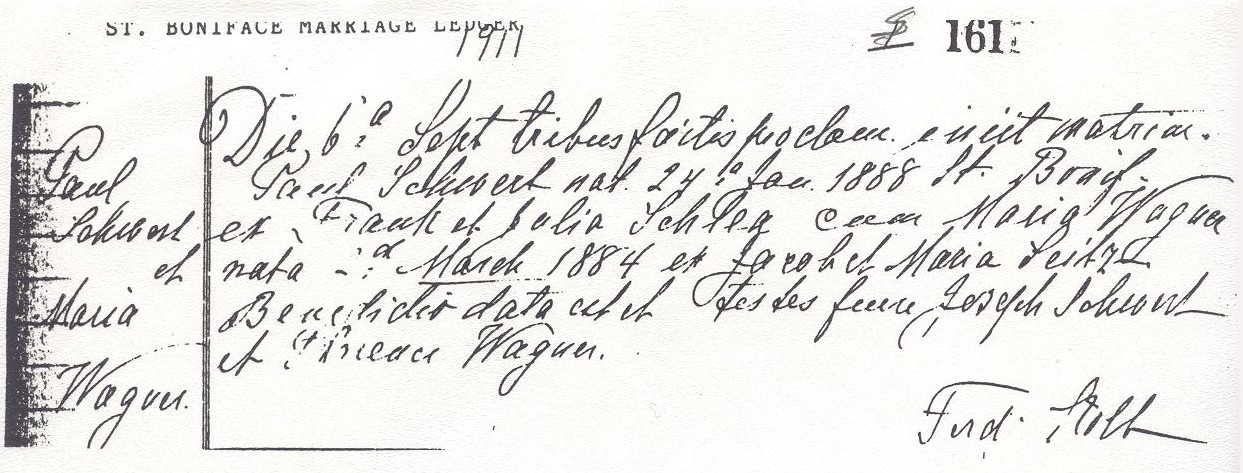 ST. BONIFACE MARRIAGE LEDGER
1911
161
Paul
Schwert
et
Maria
Wagner.
Die 6.a Sept tribus factis proclam. iniit matrim.
Paul Schwert nat. 24.a Jan. 1888 St. Bonif.
ex Frank et Julia Schleg cum Maria Wagner
nata March 1884 ex Jacob et Maria Seitz
Benedictio data est et testes fuere Joseph Schwert
et Wagner.
Ferd. Kolb